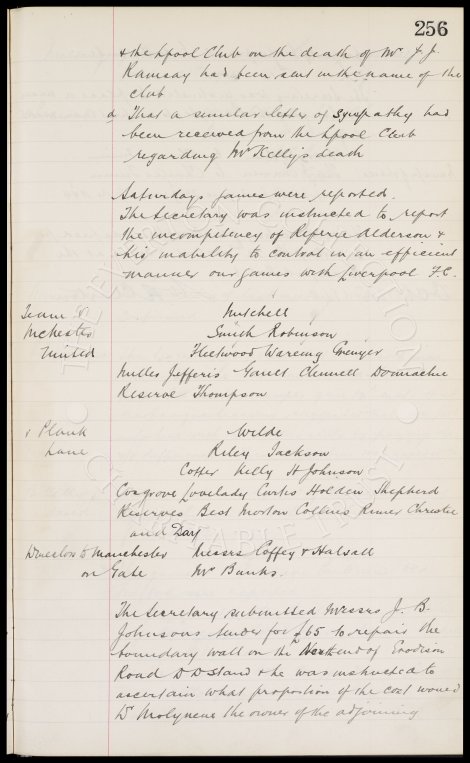 256
& the Lpool Club on the death of Mr J. J.
Ramsay had been sent in the name of the
club
d That a similar letter of sympathy had
been received from the Lpool Club
regarding Mr Kelly's death
Saturdays games were reported.
The Secretary was instructed to report
the incompetency of Referee Alderson &
his inability to control in an efficient
manner our games with Liverpool F.C.
Team v Mitchell
McHester Smith Robinson
United Fleetwood Wareing Grenyer
Miller Jefferis Gault Clennell Donnachie
Reserve Thompson
v Plank Wilde
Lane Riley Jackson
Cotter Kelly H Johnson
Cosgrove Lovelady Curtis Holden Shepherd
Reserves Best Morton Collins Rimmer Christie
and Day
Director to Manchester Messrs Coffey & Halsall
on Gate Mr Banks.
The Secretary submitted Messrs J. B.
Johnsons tender for £65 to repair the
boundary wall on the West end of Goodison
Road D D Stand & he was instructed to
ascertain what proportion of the cost would
Dr Molyneux the owner of the adjoining